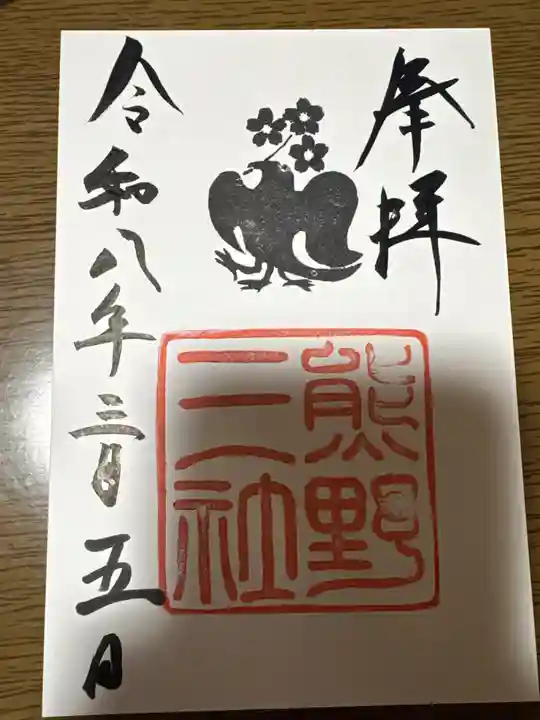 奉拝
熊野
三社
令和八年三月五日